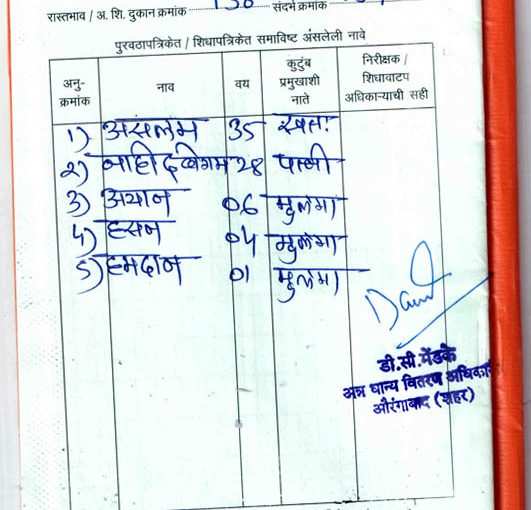 रास्तभाव / अ. शि. दुकान क्रमांक 138 संदर्भ क्रमांक
पुरवठापत्रिकेत / शिधापत्रिकेत समाविष्ट असलेली नावे
अनु-क्रमांक नाव वय कुटुंब प्रमुखाशी नाते निरीक्षक / शिधावाटप अधिकाऱ्याची सही
1) असलम 35 स्वतः
2) नाहीदबेगम 28 पत्नी
3) अयान 06 मुलगा
4) हसन 04 मुलगा
5) हमदान 01 मुलगा
डी.सी.मेंडके
अन्न धान्य वितरण अधिकारी
औरंगाबाद (शहर)